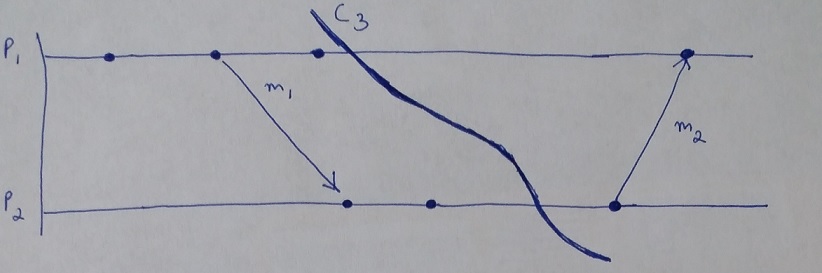 C3
P1
m1
m2
P2